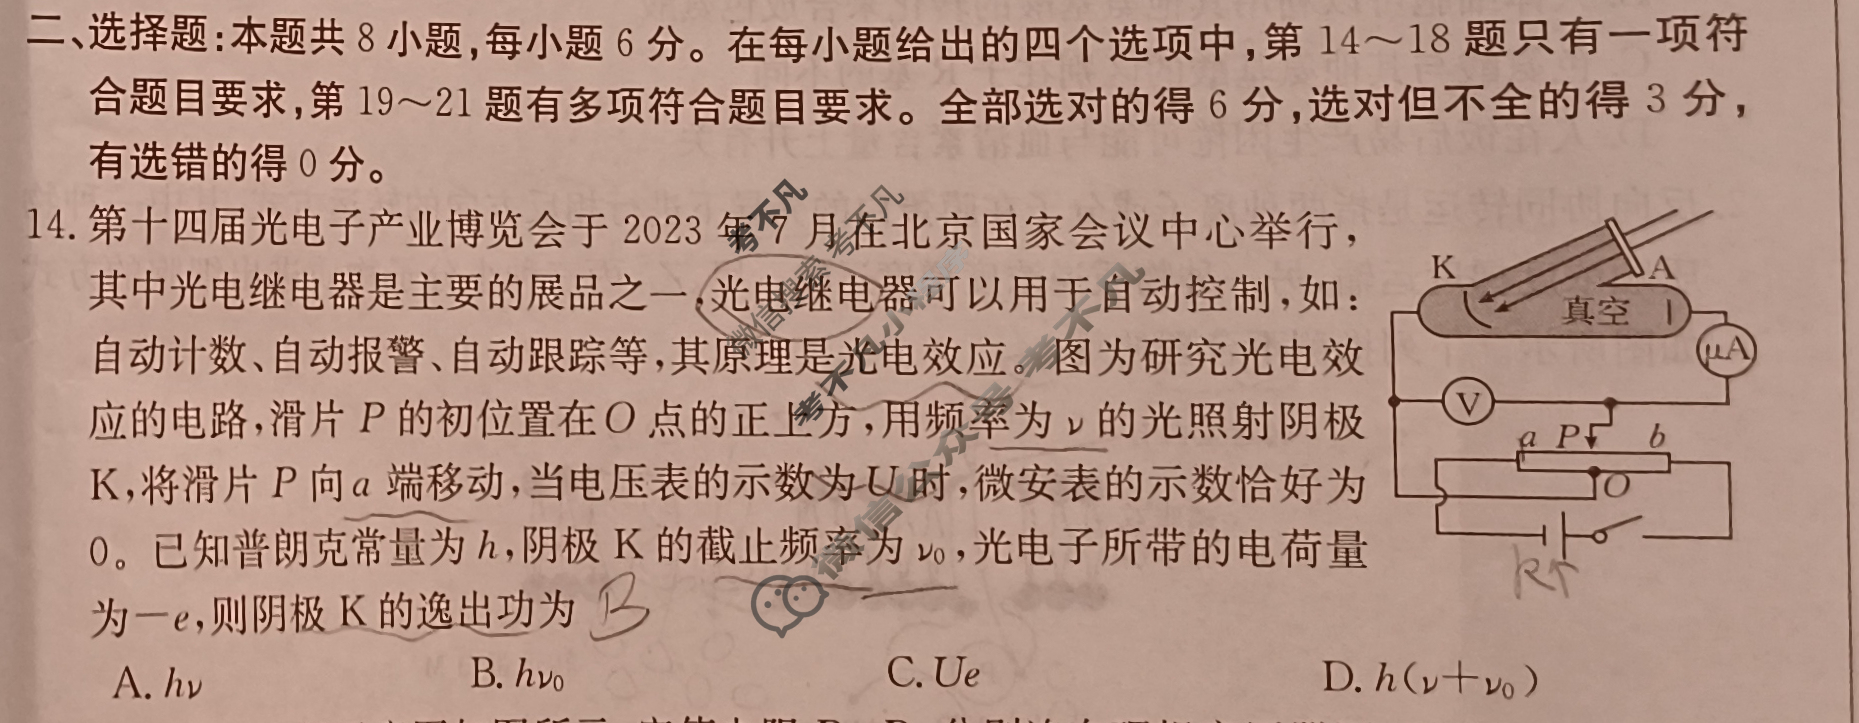 二、选择题:本题共 8 小题,每小题 6 分。在每小题给出的四个选项中,第 14～18 题只有一项符
合题目要求,第 19～21 题有多项符合题目要求。全部选对的得 6 分,选对但不全的得 3 分,
有选错的得 0 分。
14. 第十四届光电子产业博览会于 2023 年 7 月在北京国家会议中心举行,
其中光电继电器是主要的展品之一,光电继电器可以用于自动控制,如:
自动计数、自动报警、自动跟踪等,其原理是光电效应。图为研究光电效
应的电路,滑片 P 的初位置在 O 点的正上方,用频率为 ν 的光照射阴极
K,将滑片 P 向 a 端移动,当电压表的示数为 U 时,微安表的示数恰好为
0。已知普朗克常量为 h,阴极 K 的截止频率为 ν₀,光电子所带的电荷量
为－e,则阴极 K 的逸出功为 B
A. hν
B. hν₀
C. Ue
D. h(ν＋ν₀)
K
A
真空
μA
V
a
P
b
O
考不凡
微信搜索 考不凡
考不凡小程序
微信公众号 考不凡